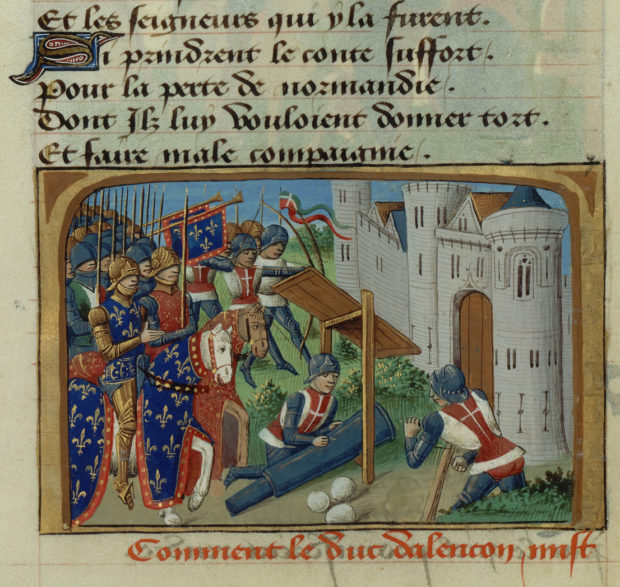 Et les seigneurs qui y la furent.
Si prindrent le conte suffort.
Pour la perte de normandie.
Dont Ilz luy vouloient donner tort.
Et faire male compaignie.
Comment le duc dalencon mist